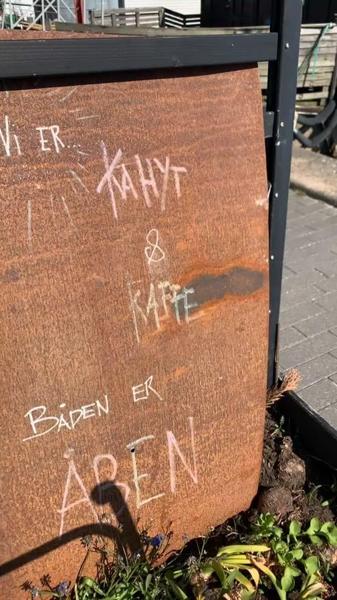 Vi ER...
KAHYT
&
KAFFE
BÅDEN ER
ÅBEN